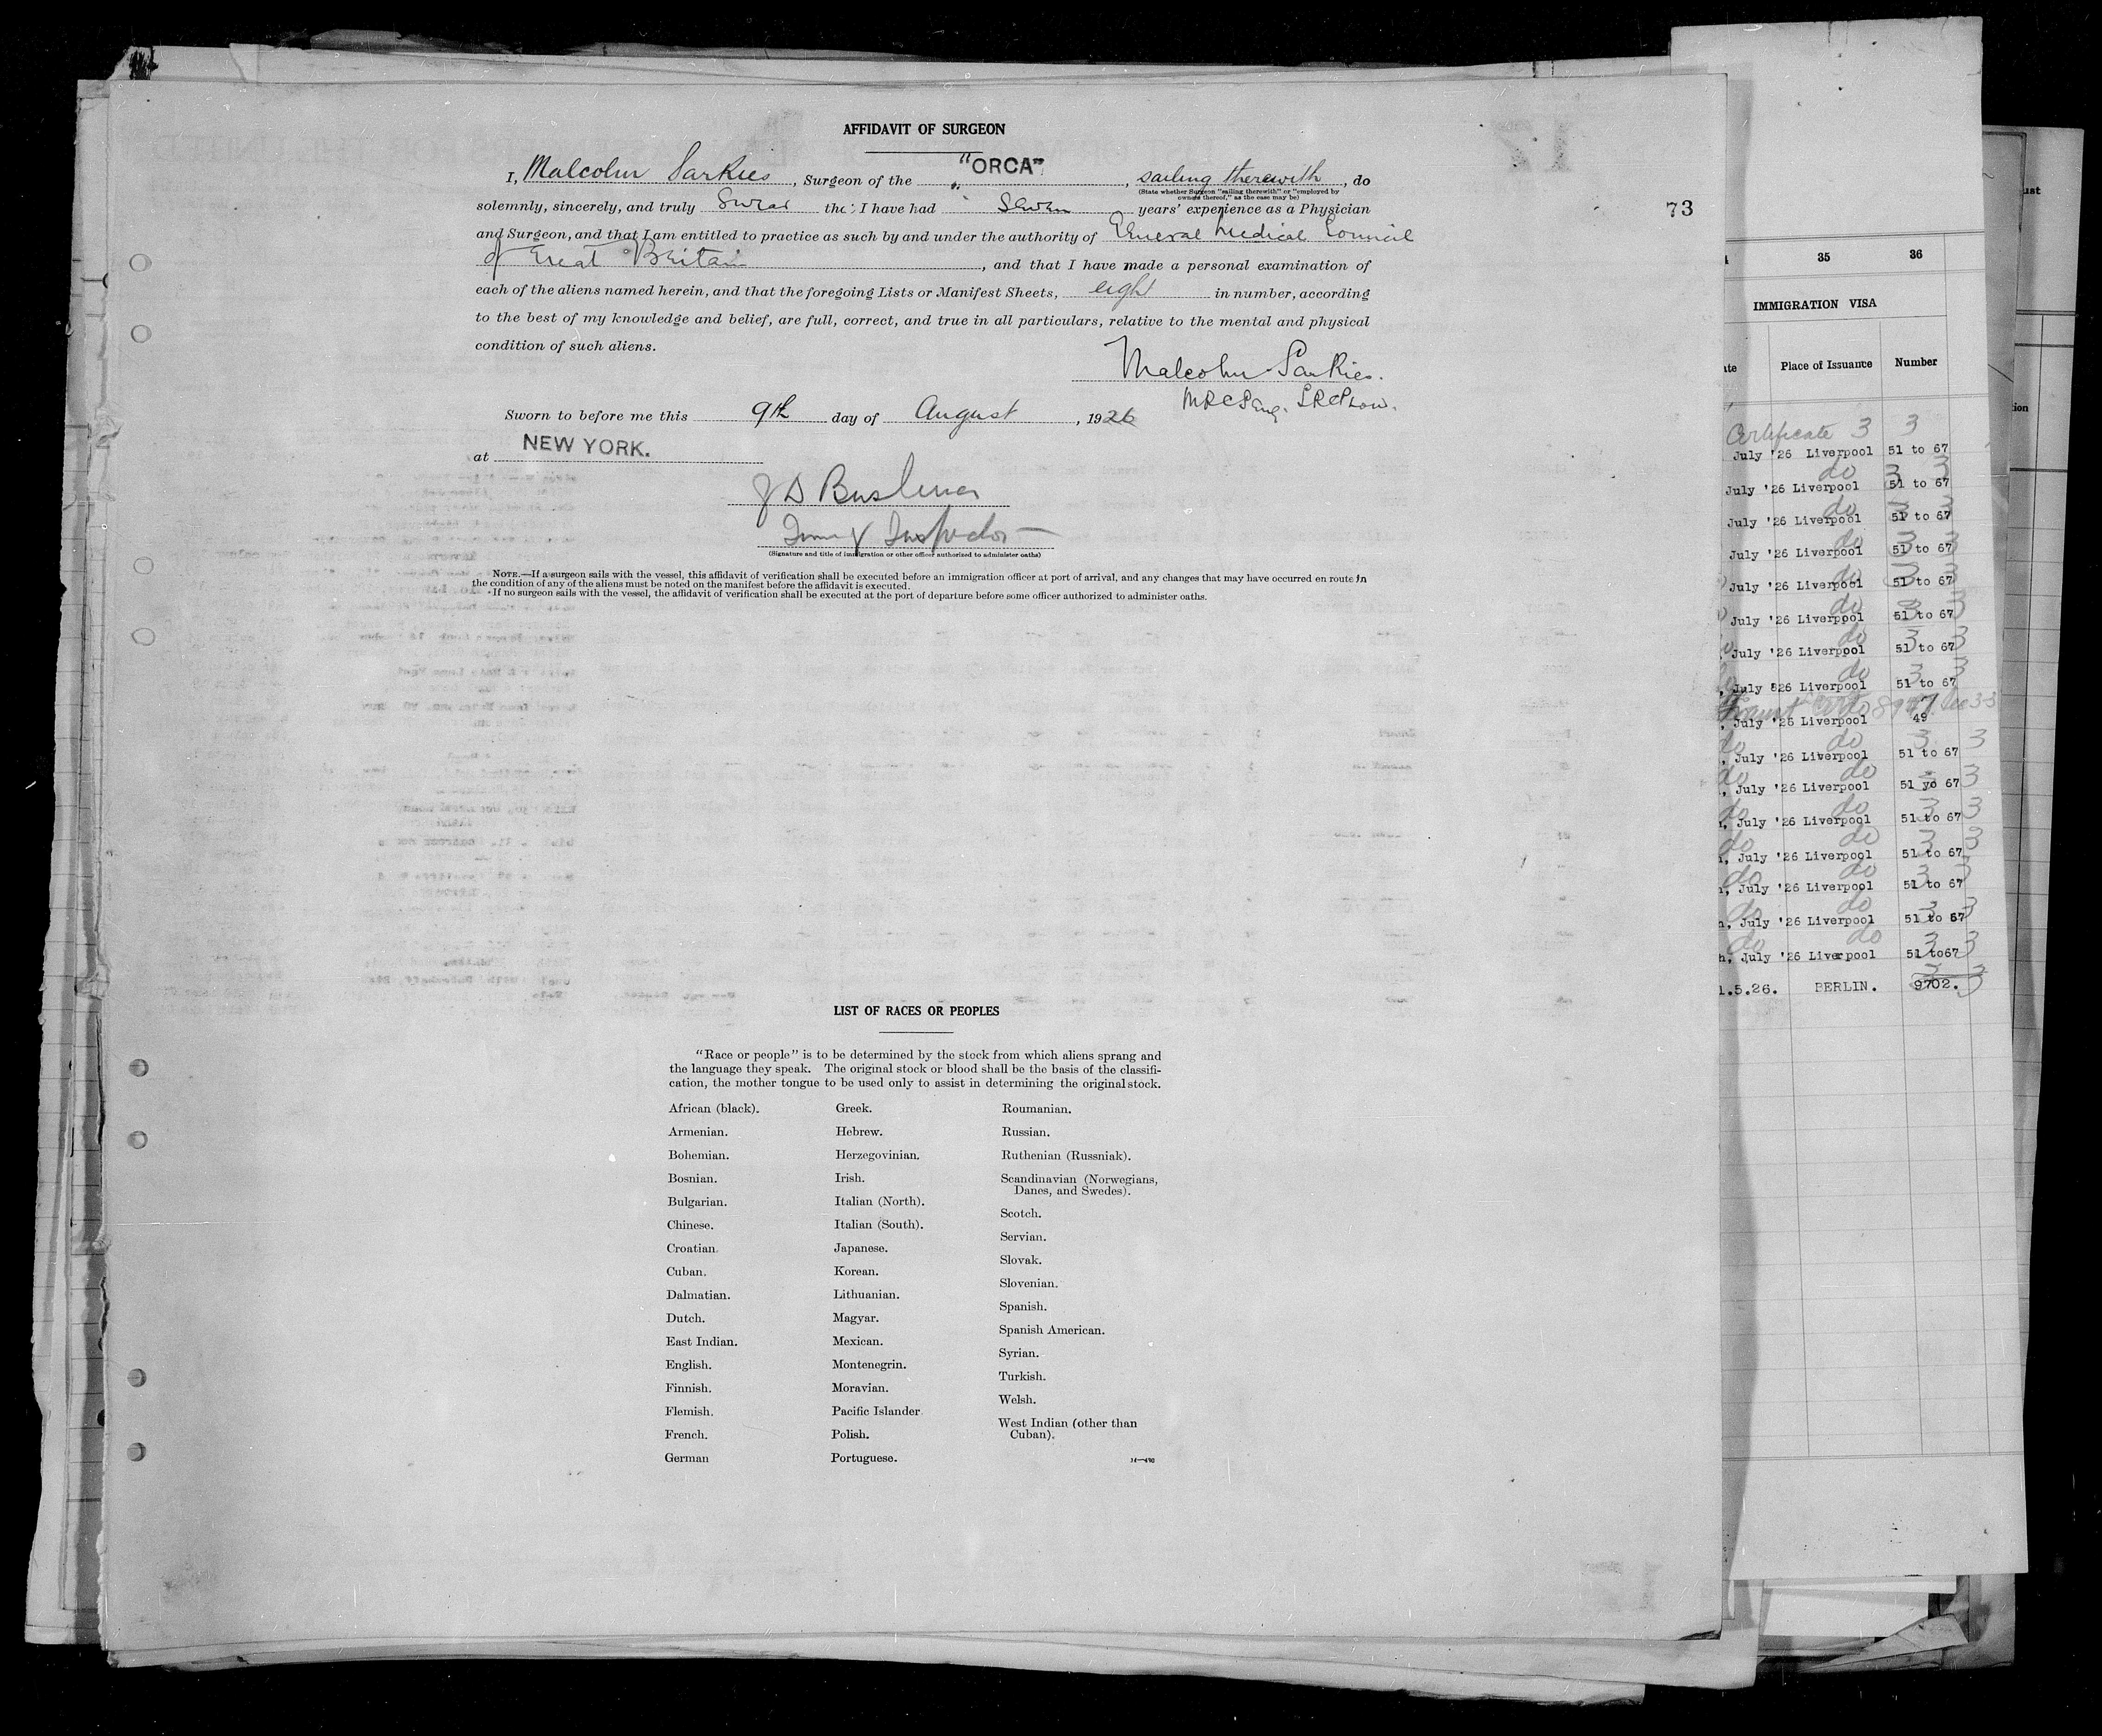 AFFIDAVIT OF SURGEON
I, Malcolm Sarkies, Surgeon of the "ORCA", sailing therewith, do
(State whether Surgeon "sailing therewith" or "employed by
owners thereof," as the case may be)
solemnly, sincerely, and truly Swear that I have had Seven years' experience as a Physician
and Surgeon, and that I am entitled to practice as such by and under the authority of General Medical Council
of Great Britain, and that I have made a personal examination of
each of the aliens named herein, and that the foregoing Lists or Manifest Sheets, eight in number, according
to the best of my knowledge and belief, are full, correct, and true in all particulars, relative to the mental and physical
condition of such aliens.
Malcolm Sarkies.
MRCS Eng. LRCP Lon.
Sworn to before me this 9th day of August, 1926
at NEW YORK.
Inspector
(Signature and title of immigration or other officer authorized to administer oaths)
NOTE.—If a surgeon sails with the vessel, this affidavit of verification shall be executed before an immigration officer at port of arrival, and any changes that may have occurred en route in
the condition of any of the aliens must be noted on the manifest before the affidavit is executed.
If no surgeon sails with the vessel, the affidavit of verification shall be executed at the port of departure before some officer authorized to administer oaths.
73
LIST OF RACES OR PEOPLES
"Race or people" is to be determined by the stock from which aliens sprang and
the language they speak. The original stock or blood shall be the basis of the classifi-
cation, the mother tongue to be used only to assist in determining the original stock.
African (black).
Armenian.
Bohemian.
Bosnian.
Bulgarian.
Chinese.
Croatian.
Cuban.
Dalmatian.
Dutch.
East Indian.
English.
Finnish.
Flemish.
French.
German
Greek.
Hebrew.
Herzegovinian.
Irish.
Italian (North).
Italian (South).
Japanese.
Korean.
Lithuanian.
Magyar.
Mexican.
Montenegrin.
Moravian.
Pacific Islander.
Polish.
Portuguese.
Roumanian.
Russian.
Ruthenian (Russniak).
Scandinavian (Norwegians,
Danes, and Swedes).
Scotch.
Servian.
Slovak.
Slovenian.
Spanish.
Spanish American.
Syrian.
Turkish.
Welsh.
West Indian (other than
Cuban).
35 36
IMMIGRATION VISA
Place of Issuance Number
Certificate 3 3
July '26 Liverpool 51 to 67
do 3 3
July '26 Liverpool 51 to 67
do 3 3
July '26 Liverpool 51 to 67
do 3 3
July '26 Liverpool 51 to 67
do 3 3
July '26 Liverpool 51 to 67
do 3 3
July '26 Liverpool 51 to 67
do 3 3
July '26 Liverpool 51 to 67
do 3 3
July 826 Liverpool 51 to 67
July '26 Liverpool 49
do do 3 3
July '26 Liverpool 51 to 67
do do 3
July '26 Liverpool 51 yo 67
do do 3 3
July '26 Liverpool 51 to 67
do do 3 3
July '26 Liverpool 51 to 67
do do 3 3
July '26 Liverpool 51 to 67
do do 3 3
July '26 Liverpool 51 to 67
do do 3 3
July '26 Liverpool 51 to67
3 3
1.5.26. BERLIN. 9702.